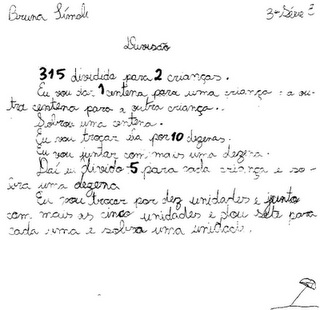 Bruna Simoli 3ª Série E
Divisão
315 dividido para 2 crianças.
Eu vou dar 1 centena para uma criança e a ou-
tra centena para a outra criança.
Sobrou uma centena.
Eu vou trocar ela por 10 dezenas.
Eu vou juntar com mais uma dezena.
Daí eu divido 5 para cada criança e so-
bra uma dezena
Eu vou trocar por dez unidades e junto
com mais as cinco unidades e dou sete para
cada uma e sobra uma unidade.